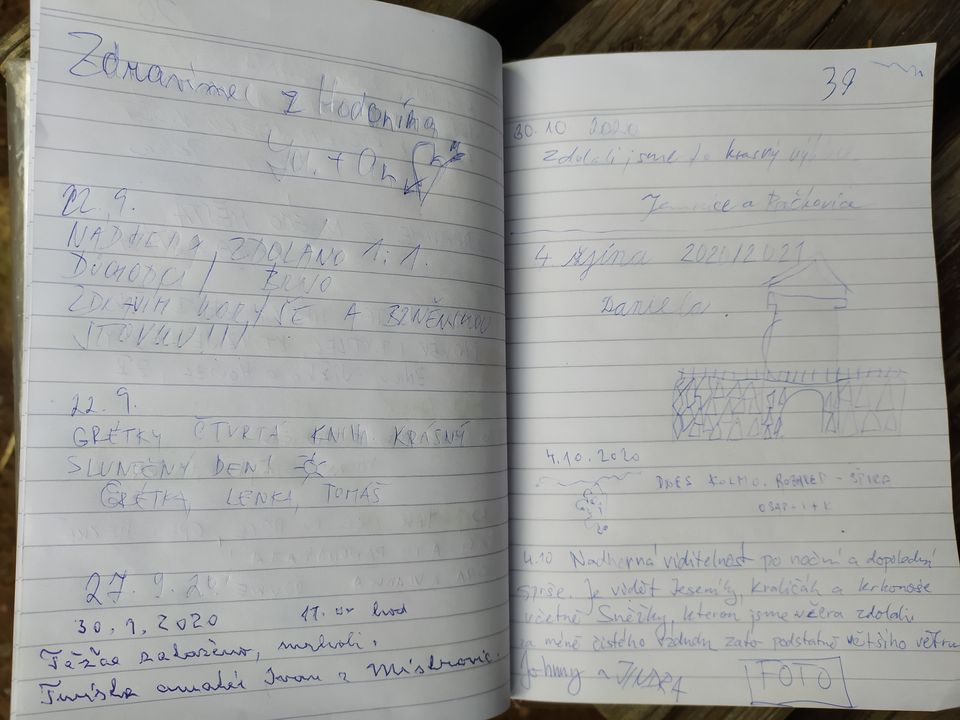 Zdravíme z Hodonína
22.9.
NÁDHERA, ZDOLÁNO 1:1.
DŮCHODCI, BRNO
ZDRAVÍM A BRNĚNSKOU
22.9.
GRÉTKY ČTVRTÁ KNIHA. KRÁSNÝ
SLUNEČNÝ DEN!
GRÉTKA, LENKA, TOMÁŠ
27.9.20
30.9.2020 17.00 hod
zataženo, mrholí.
Ivan z
39
30.10 2020
Zdolali jsme krásný
a
4 října 2020/2021
Daniela
4.10.2020
DNES KOLMO. ROZHLED - ŠÍŘKA
4.10 Nádherná viditelnost po noční a dopolední
sprše. Je vidět Jeseníky, Kraličák a Krkonoše
včetně Sněžky, kterou jsme včera zdolali
za méně čistého vzduchu zato podstatně většího větru
Johnny a JINDRA FOTO